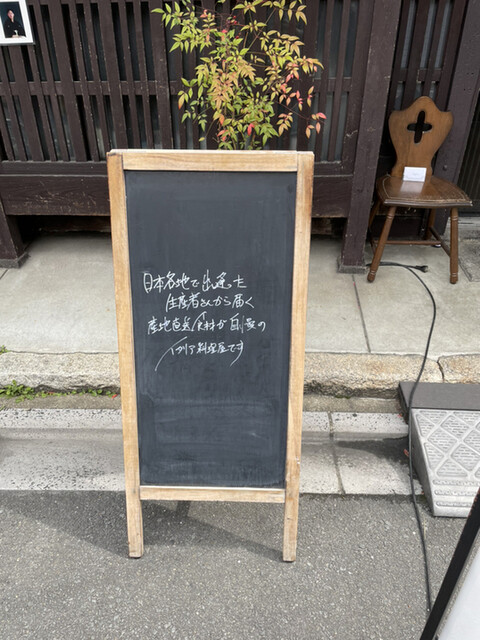 日本各地で出逢った
生産者さんから届く
産地直送食材が自慢の
イタリア料理屋です